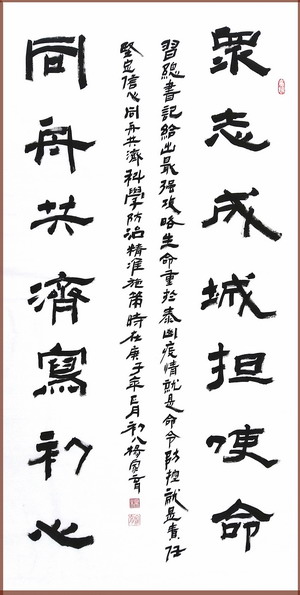 眾志成城担使命
習總書記給出最强攻略生命重於泰山疫情就是命令防控就是責任
堅定信心同舟共濟科學防治精准施策時在庚子年正月初八楊家
同舟共濟寫初心